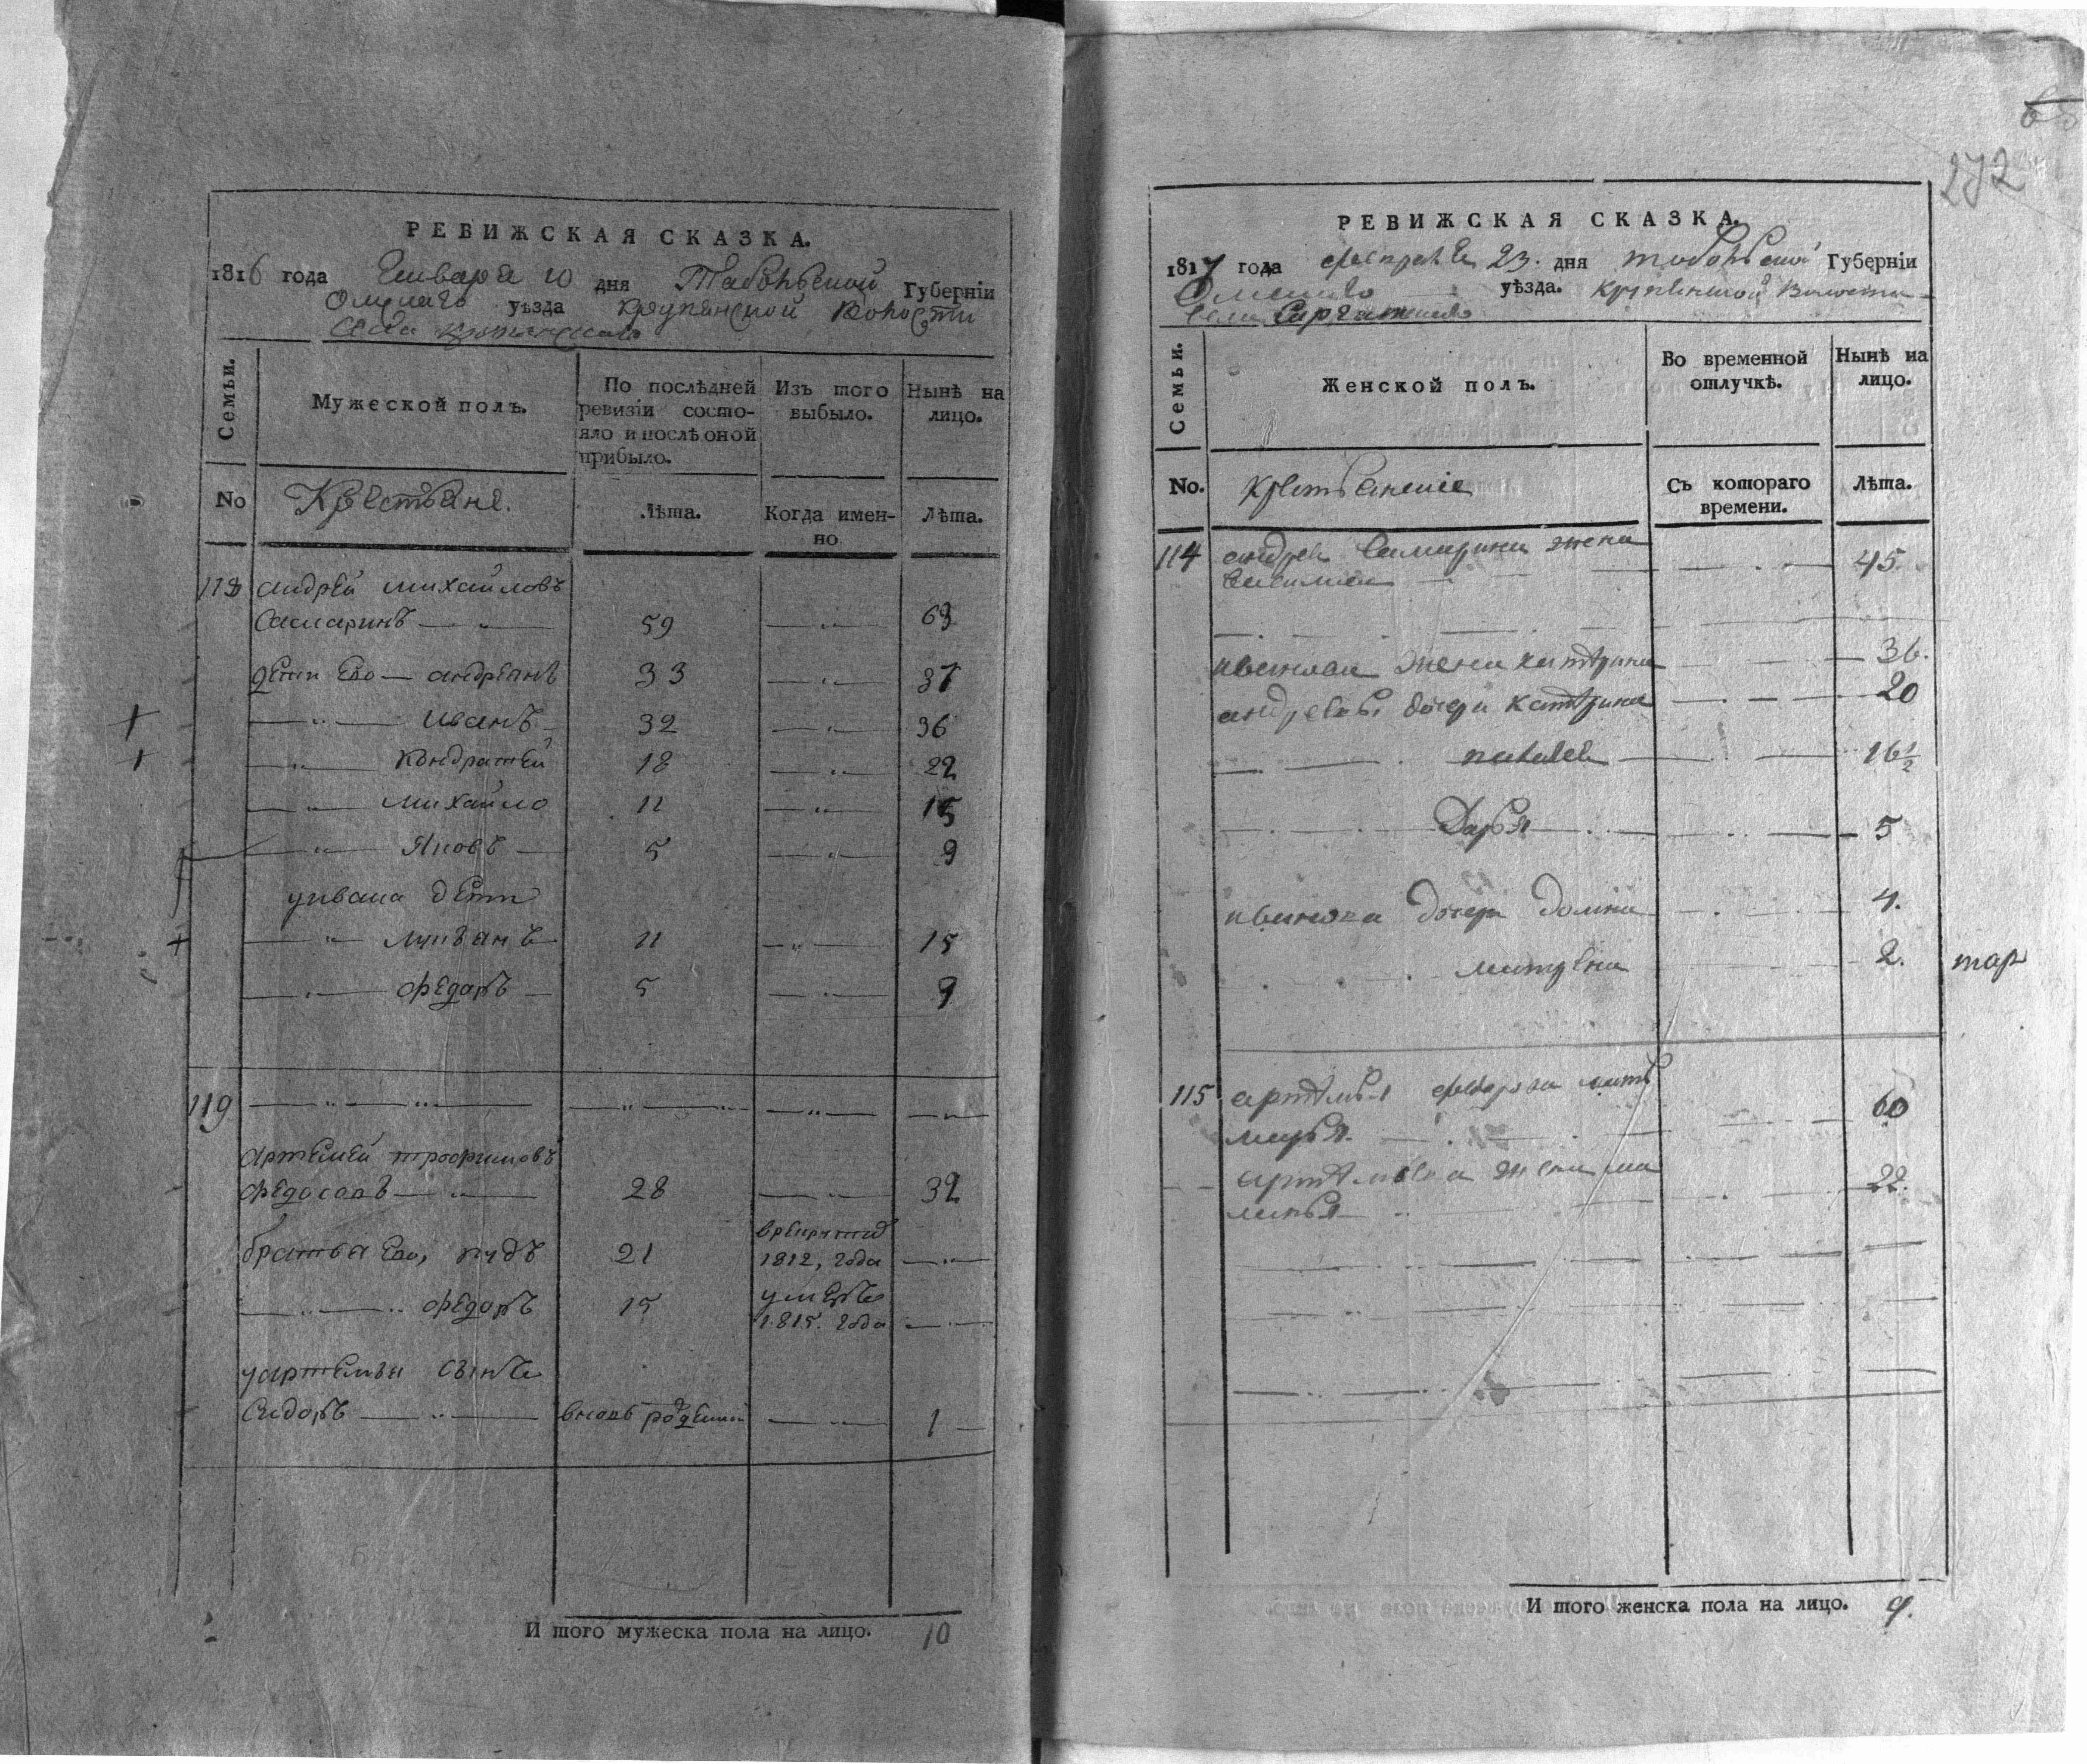 РЕВИЖСКАЯ СКАЗКА.
1816 года Генваря 10 дня Табольской Губерніи
Омскаго уѣзда Крупянской Волости
Села
Семьи. Мужеской полъ. По послѣдней ревизіи состояло и послѣ оной прибыло. Изъ того выбыло. Нынѣ на лицо.
No Крестьяне. Лѣта. Когда именно Лѣта.
118 андрей михайловъ
Самаринъ 59 63
дети Ево андреянъ 33 37
иванъ 32 36
Кондратей 18 22
михайло 11 15
Яковъ 5 9
уивана дети
лукьанъ 11 15
Федоръ 5 9
119
Артемей трофимовъ
Федосовъ 28 32
братья Ево, кудъ 21 врекруты
1812, года
Федоръ 15 умеръ
1815. года
уартемья сынъ
Сидоръ вновь рожденной 1
И того мужеска пола на лицо. 10
272
РЕВИЖСКАЯ СКАЗКА.
1817 года февраля 23. дня тобольской Губерніи
Омскаго уѣзда. Крупянской Волости
Села
Семьи. Женской полъ. Во временной отлучкѣ. Нынѣ на лицо.
No. Крестьянские Съ котораго времени. Лѣта.
114 андрея Самарина жена
Василиса 45
ивановаи жена катѣрина 36.
андреевы дочери катѣрина 20
16 1/2
Дарья 5
иванова дочери домна 4.
матрена 2. тар
115 артемья федорова мать
марья 60
артемьева жена ма
22.
И того женска пола на лицо. 9.